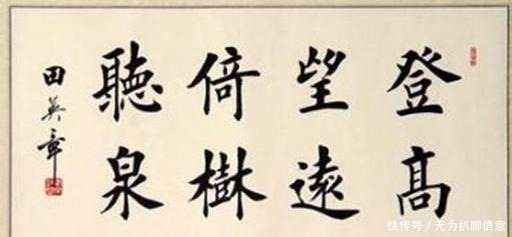 登髙
望遠
倚樹
聽泉
田英章
快传号/无为扒聊信意